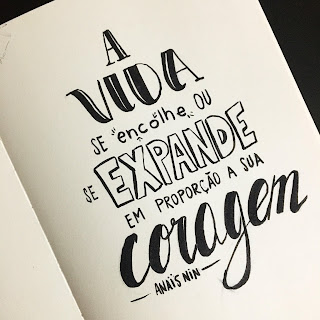 A
VIDA
SE "encolhe" OU
SE EXPANDE
EM PROPORÇÃO A SUA
coragem
ANAÏS NIN